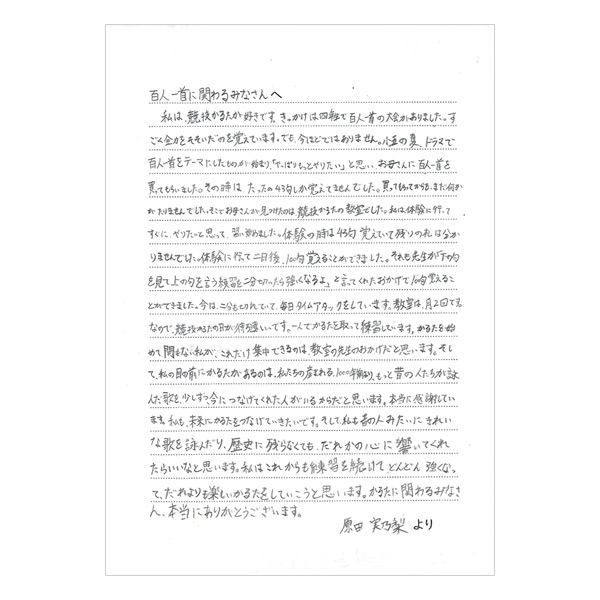 百人一首に関わるみなさんへ
私は、競技かるたが好きです。きっかけは四年生で百人一首の大会がありました。す
ごく全力をそそいだのを覚えています。でも、今ほどではありません。小五の夏、ドラマで
百人一首をテーマにしたものが始まり、「やっぱりもっとやりたい」と思い、お母さんに百人一首を
買ってもらいました。その時は たったの43句しか覚えてませんでした。買ってもらってからも、まだ何か
がたりませんでした。そこでお母さんが見つけたのは競技かるたの教室でした。私は、体験に行って
すぐに、やりたいと思って、習い始めました。体験の時は43句覚えていて残りの札は分か
りませんでした。体験に行って二日後、100句覚えることができました。それも先生が「下の句
を見て上の句を言う練習を二分切ったら強くなるよ」と言ってくれたおかげで100句覚えるこ
とができました。今は、二分もきれていて、毎日タイムアタックをしています。教室は、月2回です。
なので、競技かるたの日が待ち遠しいです。一人でかるたを取って練習しています。かるたを始
めて間もない私が、これだけ集中できるのは、教室の先生のおかげだと思います。そし
て、私の目の前にかるたがあるのは、私たちの産まれる、1000年前より、もっと昔の人たちが詠
んだ歌を、少しずつ今につなげてくれた人がいるからだと思います。本当に感謝してい
ます。私も、未来にかるたをつなげていきたいです。そして私も昔の人みたいにきれい
な歌を詠んだり、歴史に残らなくても、だれかの心に響いてくれ
たらいいなと思います。私はこれからも練習を続けて どんどん 強くなっ
て、だれよりも楽しいかるたをしていこうと思います。かるたに関わるみなさ
ん、本当にありがとうございます。
原田 実乃梨 より